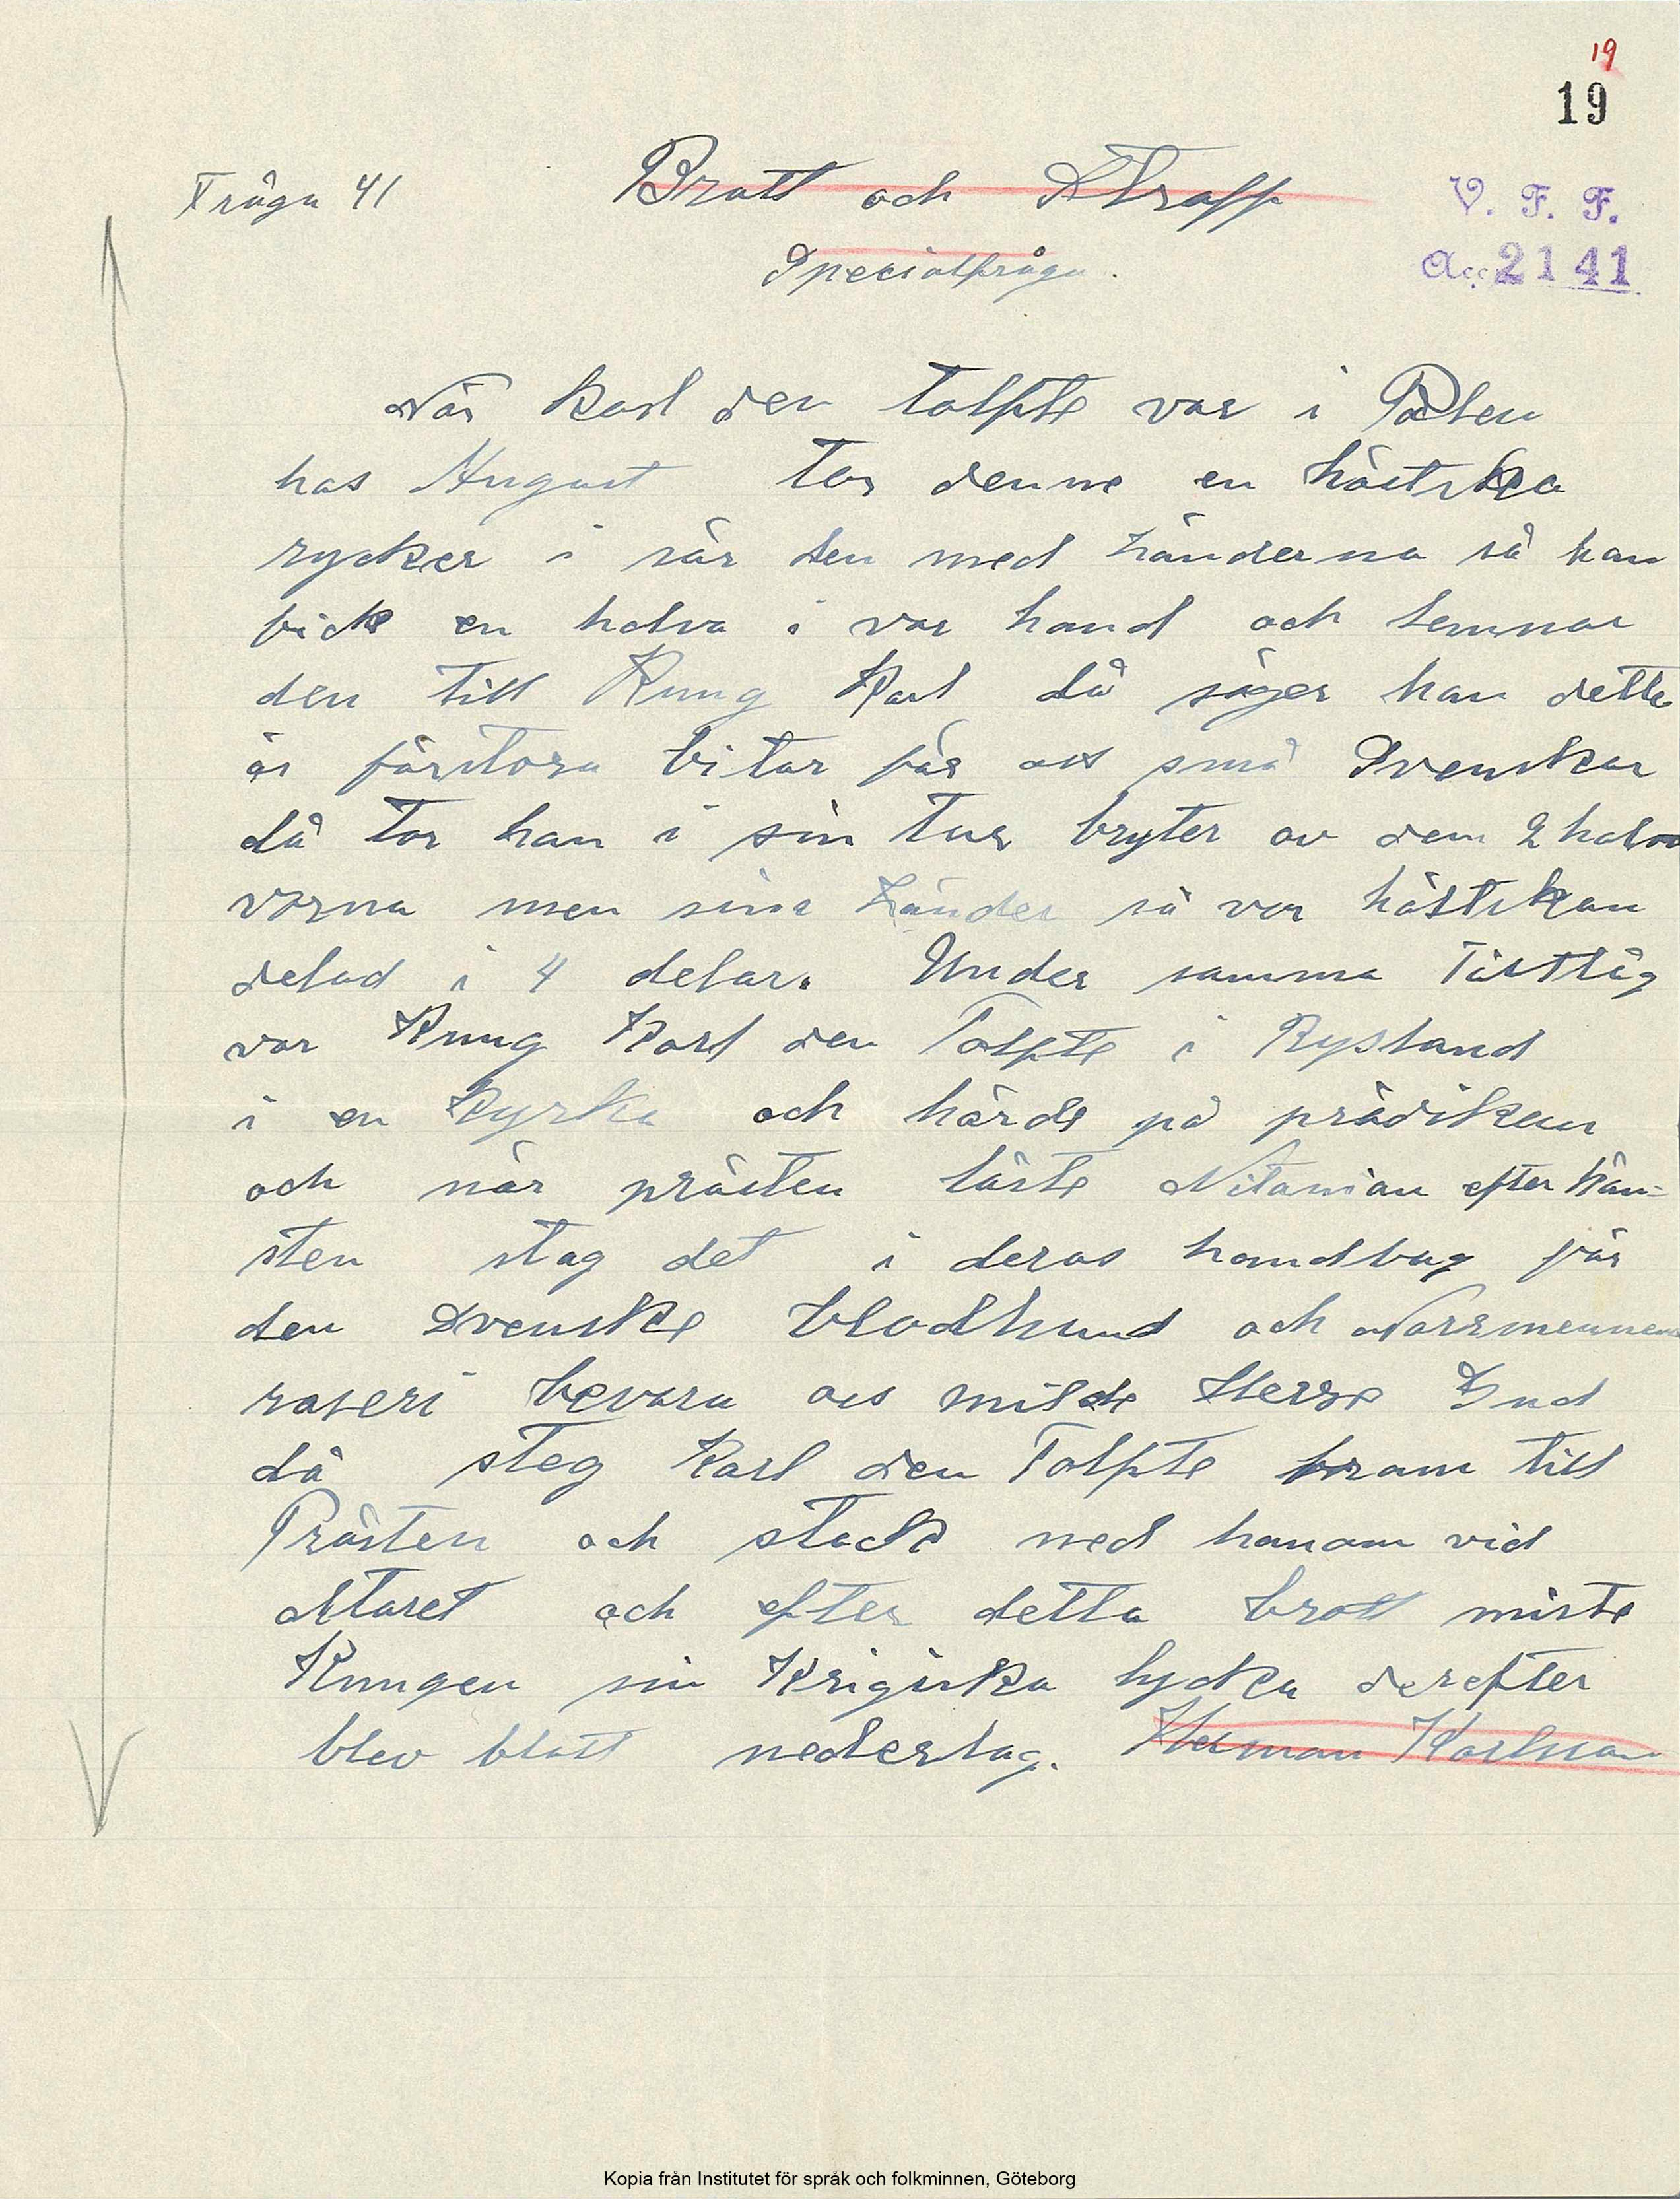 19
19
Fråga 41
Brott och Straff
V. F. F.
Specialfråga.
Acc. 2141
När Karl den tolfte var i Polen
hos August tar denne en hästsko
rycker i sär den med händerna så han
fick en halva i var hand och lemnar
den till Kung Karl då säger han detta
är förstora bitar för oss små Svenskar
då tar han i sin tur bryter av dem 2 halv
vorna men sina händer så var hästskon
delad i 4 delar. Under samma fälttåg
var Kung Karl den Tolfte i Rysland
i en Kyrka och hörde på prädikan
och när prästen läste Nitanian efter tjän-
sten stog det i deras handbog för
den Svenske blodhund och Norrmennens
raseri bevara oss milde Herre Gud
då steg Karl den Tolfte fram till
Prästen och stack ned honom vid
Altaret och efter detta brott miste
Kungen sin Krigiska lycka derefter
blev blott nederlag. Herman Karlsson
Kopia från Institutet för språk och folkminnen, Göteborg